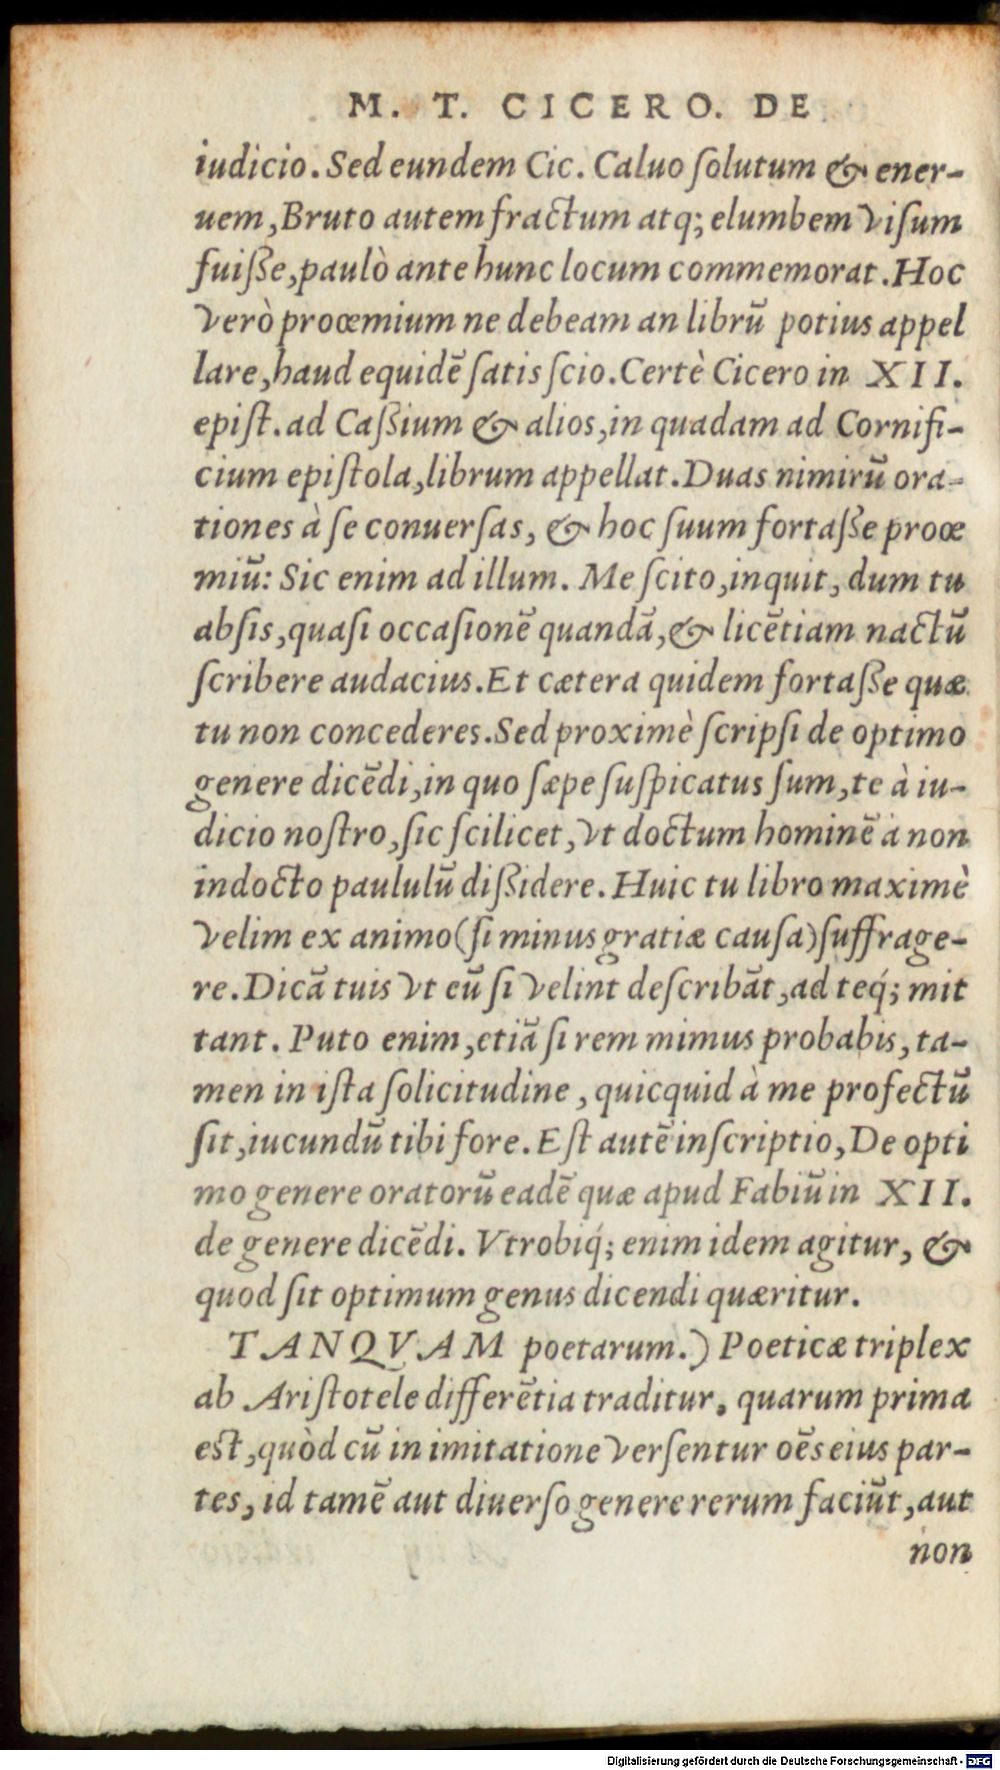 M. T. CICERO. DE
iudicio. Sed eundem Cic. Caluo ſolutum & ener-
uem, Bruto autem fractum atq; elumbem viſum
fuiſſe, paulò ante hunc locum commemorat. Hoc
verò proœmium ne debeam an librū potius appel
lare, haud equidē ſatis ſcio. Certè Cicero in XII.
epiſt. ad Caſſium & alios, in quadam ad Cornifi-
cium epiſtola, librum appellat. Duas nimirū ora-
tiones à ſe conuerſas, & hoc ſuum fortaſſe proœ
miū: Sic enim ad illum. Me ſcito, inquit, dum tu
abſis, quaſi occaſionē quandā, & licētiam nactū
ſcribere audacius. Et cætera quidem fortaſſe quæ
tu non concederes. Sed proximè ſcripſi de optimo
genere dicēdi, in quo ſæpe ſuſpicatus ſum, te à iu-
dicio noſtro, ſic ſcilicet, vt doctum hominē à non
indocto paululū diſſidere. Huic tu libro maximè
velim ex animo (ſi minus gratiæ cauſa) ſuffrage-
re. Dicā tuis vt eū ſi velint deſcribāt, ad teq́; mit
tant. Puto enim, etiā ſi rem mimus probabis, ta-
men in iſta ſolicitudine, quicquid à me profectū
ſit, iucundū tibi fore. Eſt autē inſcriptio, De opti
mo genere oratorū eadē quæ apud Fabiū in XII.
de genere dicēdi. Vtrobiq́; enim idem agitur, &
quod ſit optimum genus dicendi quæritur.
TANQVAM poetarum.) Poeticæ triplex
ab Ariſtotele differētia traditur, quarum prima
est, quòd cū in imitatione verſentur oēs eius par-
tes, id tamē aut diuerſo genere rerum faciūt, aut
non
Digitalisierung gefördert durch die Deutsche Forschungsgemeinschaft - DFG